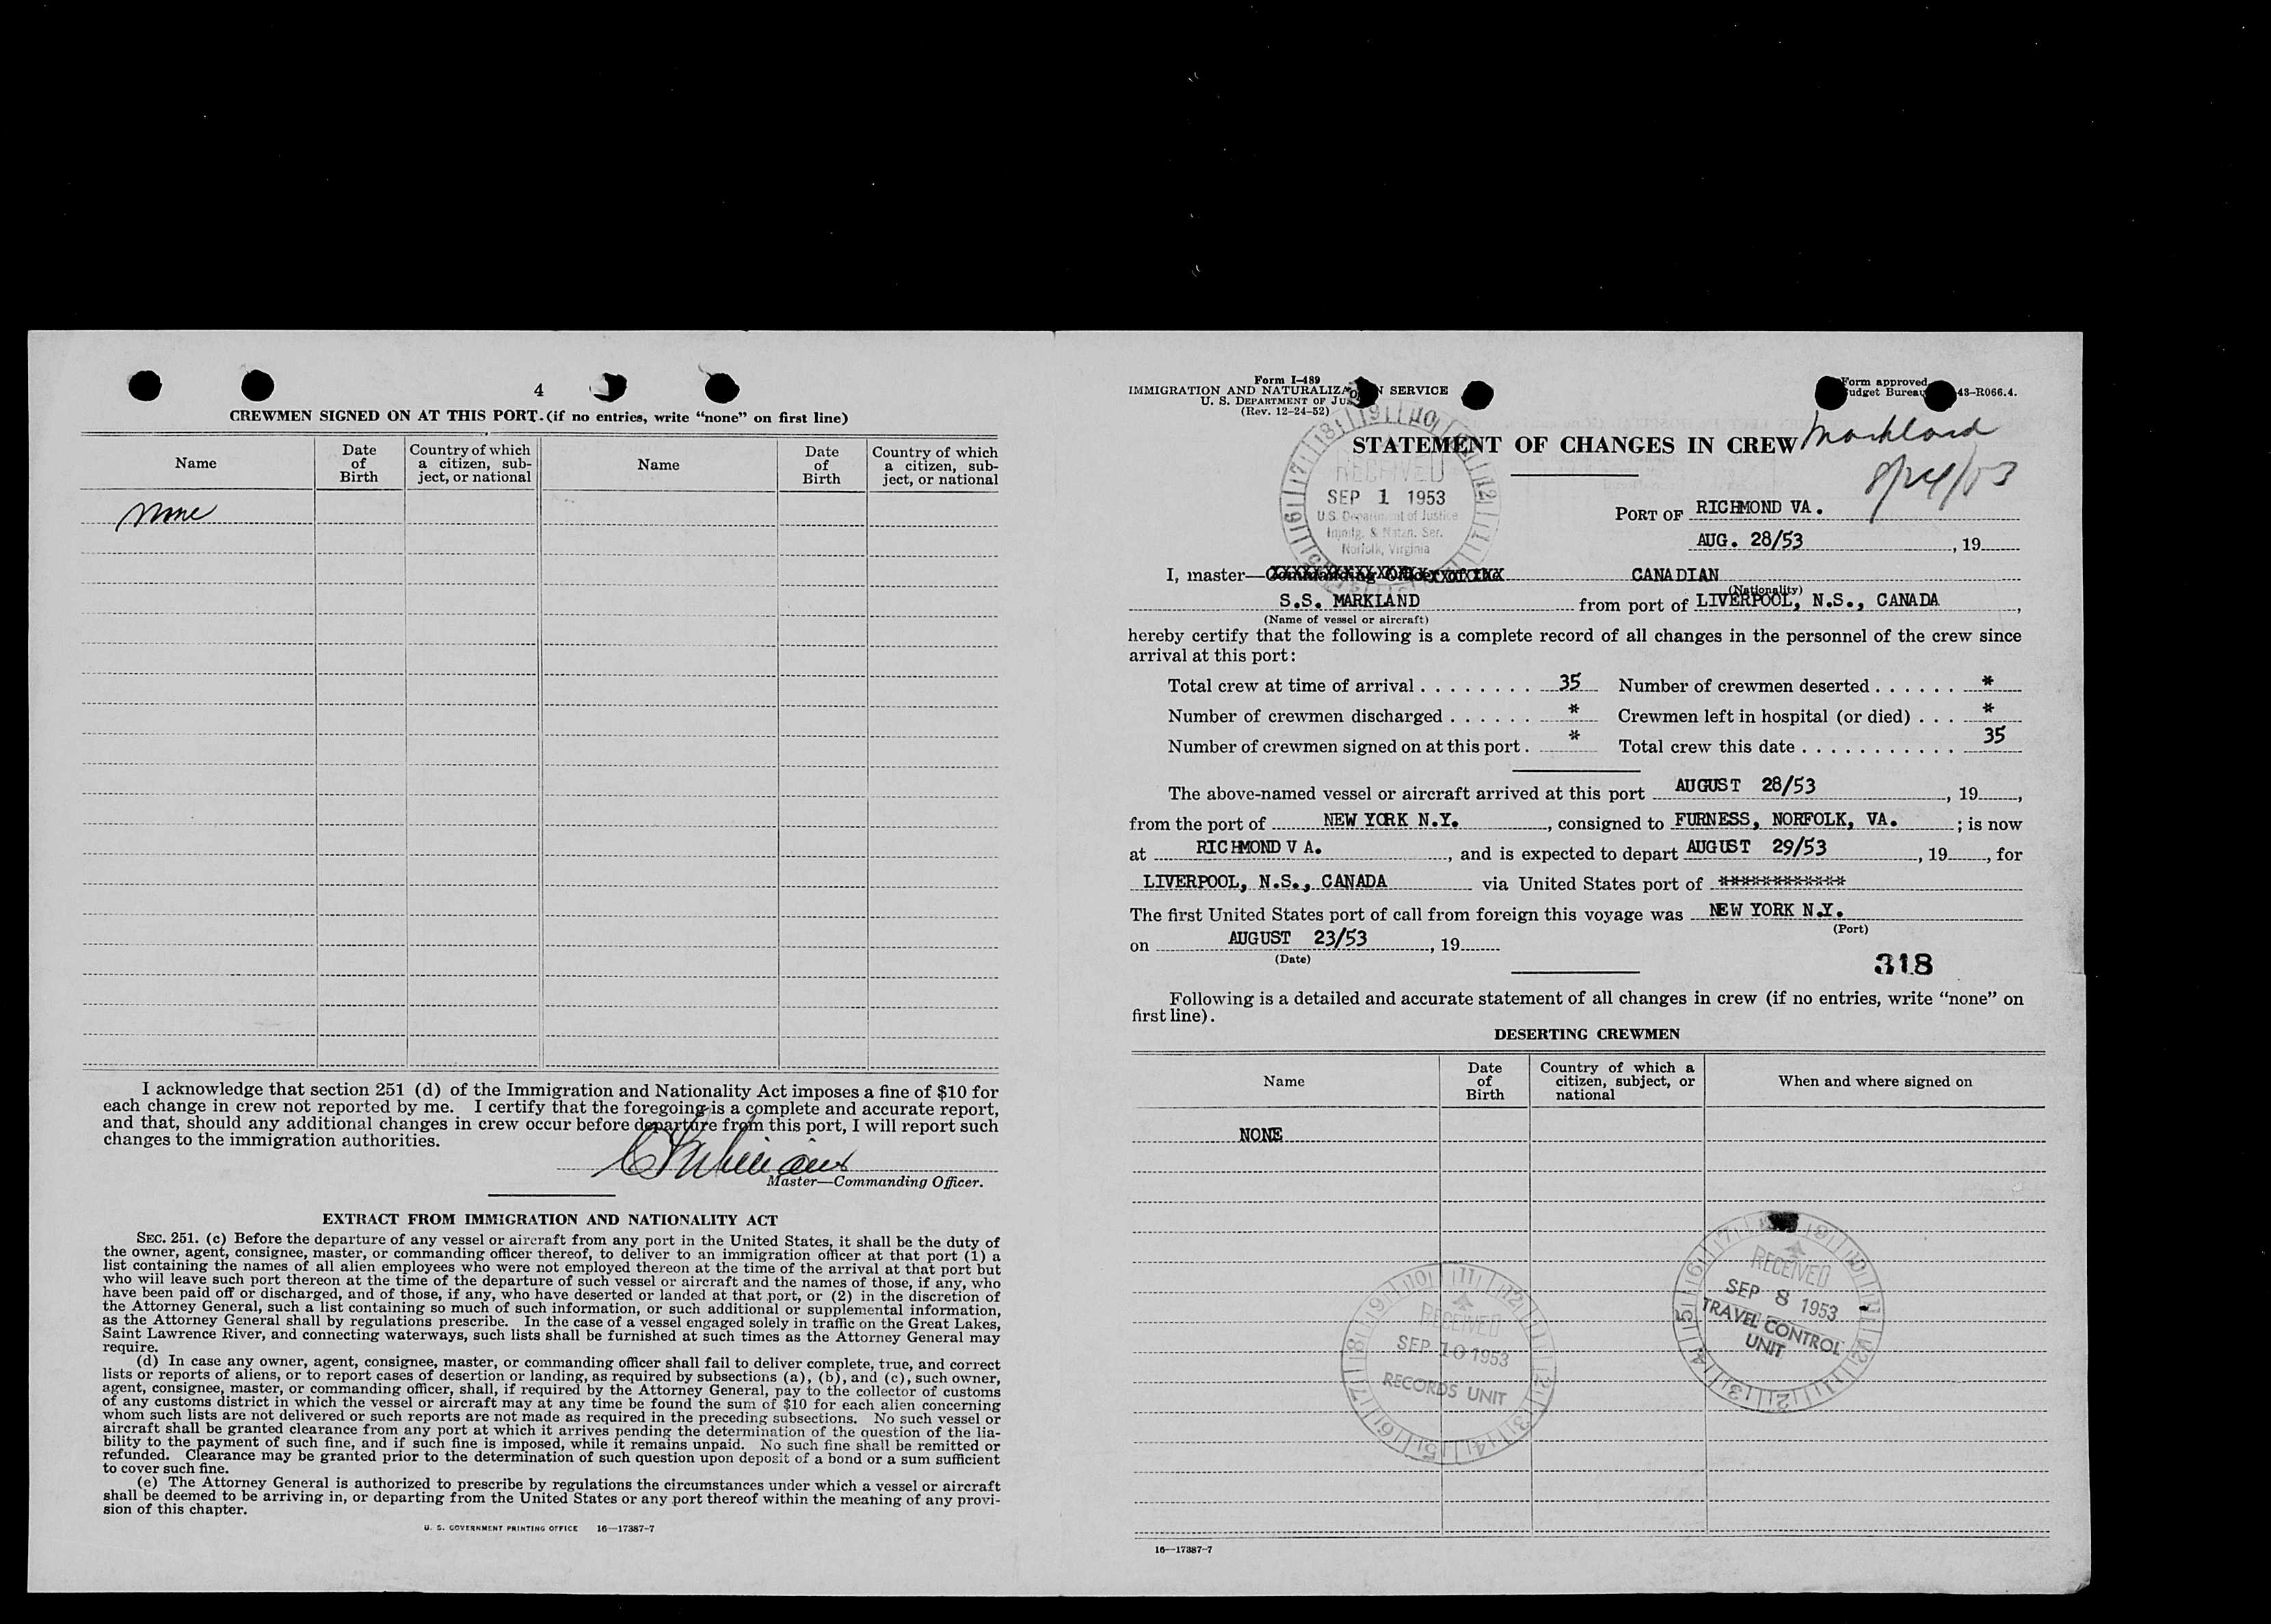 4
CREWMEN SIGNED ON AT THIS PORT. (if no entries, write “none” on first line)
Name
Date of Birth
Country of which a citizen, subject, or national
Name
Date of Birth
Country of which a citizen, subject, or national
None
I acknowledge that section 251 (d) of the Immigration and Nationality Act imposes a fine of $10 for
each change in crew not reported by me. I certify that the foregoing is a complete and accurate report,
and that, should any additional changes in crew occur before departure from this port, I will report such
changes to the immigration authorities.
Master—Commanding Officer.
EXTRACT FROM IMMIGRATION AND NATIONALITY ACT
SEC. 251. (c) Before the departure of any vessel or aircraft from any port in the United States, it shall be the duty of
the owner, agent, consignee, master, or commanding officer thereof, to deliver to an immigration officer at that port (1) a
list containing the names of all alien employees who were not employed thereon at the time of the arrival at that port but
who will leave such port thereon at the time of the departure of such vessel or aircraft and the names of those, if any, who
have been paid off or discharged, and of those, if any, who have deserted or landed at that port, or (2) in the discretion of
the Attorney General, such a list containing so much of such information, or such additional or supplemental information,
as the Attorney General shall by regulations prescribe. In the case of a vessel engaged solely in traffic on the Great Lakes,
Saint Lawrence River, and connecting waterways, such lists shall be furnished at such times as the Attorney General may
require.
(d) In case any owner, agent, consignee, master, or commanding officer shall fail to deliver complete, true, and correct
lists or reports of aliens, or to report cases of desertion or landing, as required by subsections (a), (b), and (c), such owner,
agent, consignee, master, or commanding officer, shall, if required by the Attorney General, pay to the collector of customs
of any customs district in which the vessel or aircraft may at any time be found the sum of $10 for each alien concerning
whom such lists are not delivered or such reports are not made as required in the preceding subsections. No such vessel or
aircraft shall be granted clearance from any port at which it arrives pending the determination of the question of the lia-
bility to the payment of such fine, and if such fine is imposed, while it remains unpaid. No such fine shall be remitted or
refunded. Clearance may be granted prior to the determination of such question upon deposit of a bond or a sum sufficient
to cover such fine.
(e) The Attorney General is authorized to prescribe by regulations the circumstances under which a vessel or aircraft
shall be deemed to be arriving in, or departing from the United States or any port thereof within the meaning of any provi-
sion of this chapter.
U. S. GOVERNMENT PRINTING OFFICE 16—17387-7
Form I-489
IMMIGRATION AND NATURALIZATION SERVICE
U. S. DEPARTMENT OF JUS
(Rev. 12-24-52)
Form approved
Budget Bureau 43-R066.4.
STATEMENT OF CHANGES IN CREW
Markland
8/24/53
RECEIVED
SEP 1 1953
U.S. Department of Justice
Immig. & Natzn. Ser.
Norfolk, Virginia
PORT OF RICHMOND VA.
AUG. 28/53 , 19
I, master—Commanding Officer of the CANADIAN
(Nationality)
S.S. MARKLAND from port of LIVERPOOL, N.S., CANADA ,
(Name of vessel or aircraft)
hereby certify that the following is a complete record of all changes in the personnel of the crew since
arrival at this port:
Total crew at time of arrival . . . . . . . . 35 Number of crewmen deserted . . . . . . *
Number of crewmen discharged . . . . . . * Crewmen left in hospital (or died) . . . *
Number of crewmen signed on at this port . * Total crew this date . . . . . . . . . . . 35
The above-named vessel or aircraft arrived at this port AUGUST 28/53 , 19 ,
from the port of NEW YORK N.Y. , consigned to FURNESS, NORFOLK, VA. ; is now
at RICHMOND V A. , and is expected to depart AUGUST 29/53 , 19 , for
LIVERPOOL, N.S., CANADA via United States port of ************
The first United States port of call from foreign this voyage was NEW YORK N.Y.
(Port)
on AUGUST 23/53 , 19
(Date)
318
Following is a detailed and accurate statement of all changes in crew (if no entries, write “none” on
first line).
DESERTING CREWMEN
Name
Date of Birth
Country of which a citizen, subject, or national
When and where signed on
NONE
RECEIVED
SEP 8 1953
TRAVEL CONTROL
UNIT
RECEIVED
SEP 10 1953
RECORDS UNIT
16—17387-7